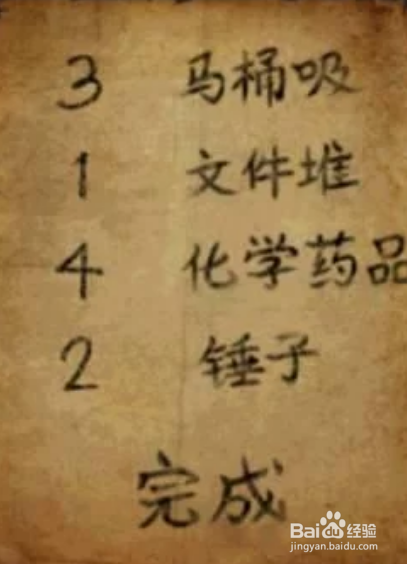 3 马桶吸
1 文件堆
4 化学药品
2 锤子
完成
Bai du 经验
jingyan.baidu.com